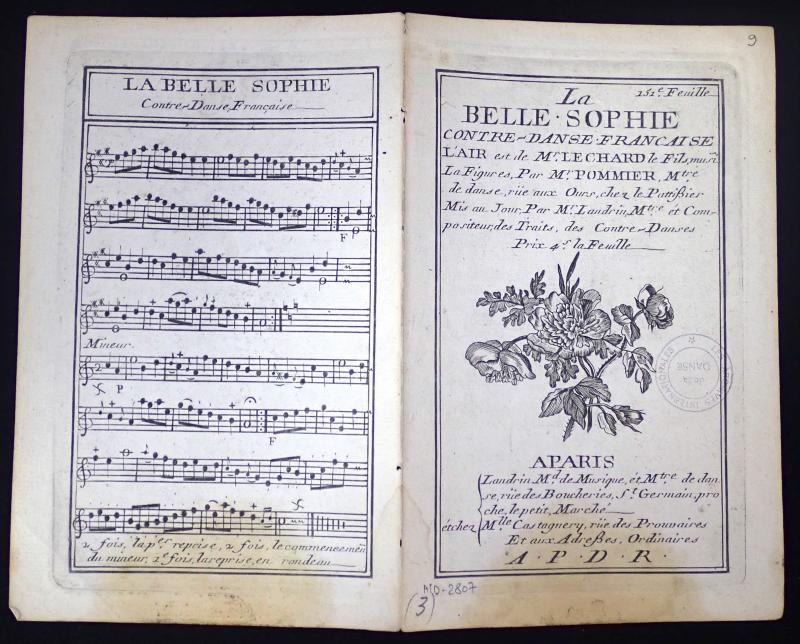 LA BELLE SOPHIE
Contre-Danse, Française
F
Mineur.
P
F
2 fois, la p.er reprise, 2 fois, le commencemen
du mineur, 1.e fois, la reprise, en rondeau
9
151.e Feuille
La
BELLE·SOPHIE
CONTRE-DANSE·FRANCAISE
L'AIR est de M.r LECHARD le Fils, musi.
La Figures, Par M.r POMMIER, M.tre
de danse, rüe aux Ours, chez le Pattißier
Mis au Jour, Par M.r Landrin, M.tre ét Com-
positeur, des Traits, des Contre-Danses
Prix 4.s la Feuille
DANSE
INTERNATIONALES
APARIS
Landrin M.d de Musique, ét M.tre de dan
se, rüe des Boucheries, S.t Germain, pro
che, le petit, Marché
ét chez M.lle Castagnery, rüe des Prouvaires
Et aux Adreßes, Ordinaires
A·P·D·R·
(3)